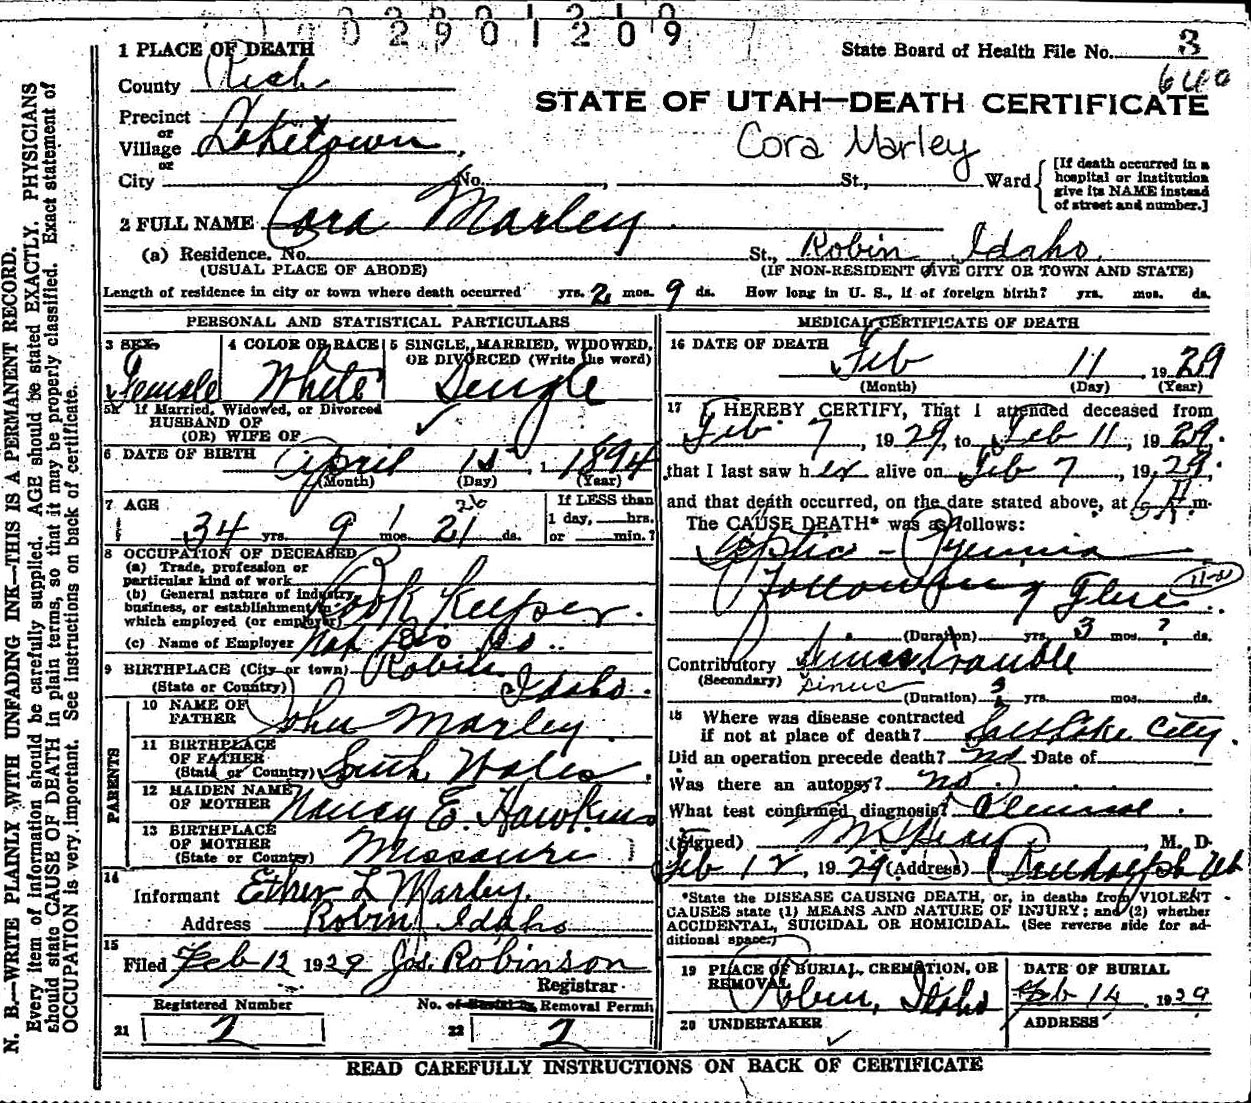 02901209
1 PLACE OF DEATH
State Board of Health File No. 3
640
County Rich
STATE OF UTAH—DEATH CERTIFICATE
Precinct
or
Village Laketown
Cora Marley
or
City No. , St., Ward
[If death occurred in a
hospital or institution
give its NAME instead
of street and number.]
2 FULL NAME Cora Marley
(a) Residence. No. St., Robin Idaho.
(USUAL PLACE OF ABODE) (IF NON-RESIDENT GIVE CITY OR TOWN AND STATE)
Length of residence in city or town where death occurred yrs. 2 mos. 9 ds. How long in U. S., if of foreign birth? yrs. mos. ds.
PERSONAL AND STATISTICAL PARTICULARS
3 SEX, 4 COLOR OR RACE 5 SINGLE, MARRIED, WIDOWED,
OR DIVORCED (Write the word)
Female White Single
5a If Married, Widowed, or Divorced
HUSBAND OF
(OR) WIFE OF
6 DATE OF BIRTH April 15, 1894
(Month) (Day) (Year)
7 AGE 34 yrs. 9 mos. 21 ds. 26
If LESS than
1 day, hrs.
or min.?
8 OCCUPATION OF DECEASED
(a) Trade, profession or
particular kind of work
(b) General nature of industry,
business, or establishment in
which employed (or employer)
Book Keeper.
(c) Name of Employer
9 BIRTHPLACE (City or town) Robin
(State or Country) Idaho.
PARENTS
10 NAME OF
FATHER John Marley
11 BIRTHPLACE
OF FATHER
(State or Country) South Wales
12 MAIDEN NAME
OF MOTHER Nancy E. Hawkins
13 BIRTHPLACE
OF MOTHER
(State or Country) Missouri
14
Informant L Marley
Address Robin Idaho
15
Filed Feb 12 1929 Jos. Robinson
Registrar
Registered Number No. of Burial or Removal Permit
21 2 22 2
MEDICAL CERTIFICATE OF DEATH
16 DATE OF DEATH Feb 11, 1929
(Month) (Day) (Year)
17 I HEREBY CERTIFY, That I attended deceased from
Feb 7, 1929, to Feb 11, 1929.
that I last saw her alive on Feb 7, 1929,
and that death occurred, on the date stated above, at 6 A. m.
The CAUSE DEATH* was as follows:
Septic - Pyemia
Following Flue
(Duration) yrs. 3 mos. ? ds.
Contributory Sinus trouble
(Secondary) sinus
(Duration) 3 yrs. mos. ds.
18 Where was disease contracted
if not at place of death? Salt Lake City.
Did an operation precede death? no Date of
Was there an autopsy? no.
What test confirmed diagnosis?
(Signed) , M. D.
Feb 12, 1929 (Address) Randolph Utah
*State the DISEASE CAUSING DEATH, or, in deaths from VIOLENT
CAUSES state (1) MEANS AND NATURE OF INJURY; and (2) whether
ACCIDENTAL, SUICIDAL OR HOMICIDAL. (See reverse side for ad-
ditional space.)
19 PLACE OF BURIAL, CREMATION, OR
REMOVAL
Robin, Idaho
DATE OF BURIAL
Feb 14, 1929
20 UNDERTAKER ADDRESS
READ CAREFULLY INSTRUCTIONS ON BACK OF CERTIFICATE
N. B.—WRITE PLAINLY WITH UNFADING INK—THIS IS A PERMANENT RECORD.
Every item of information should be carefully supplied. AGE should be stated EXACTLY. PHYSICIANS
should state CAUSE OF DEATH in plain terms, so that it may be properly classified. Exact statement of
OCCUPATION is very important. See instructions on back of certificate.